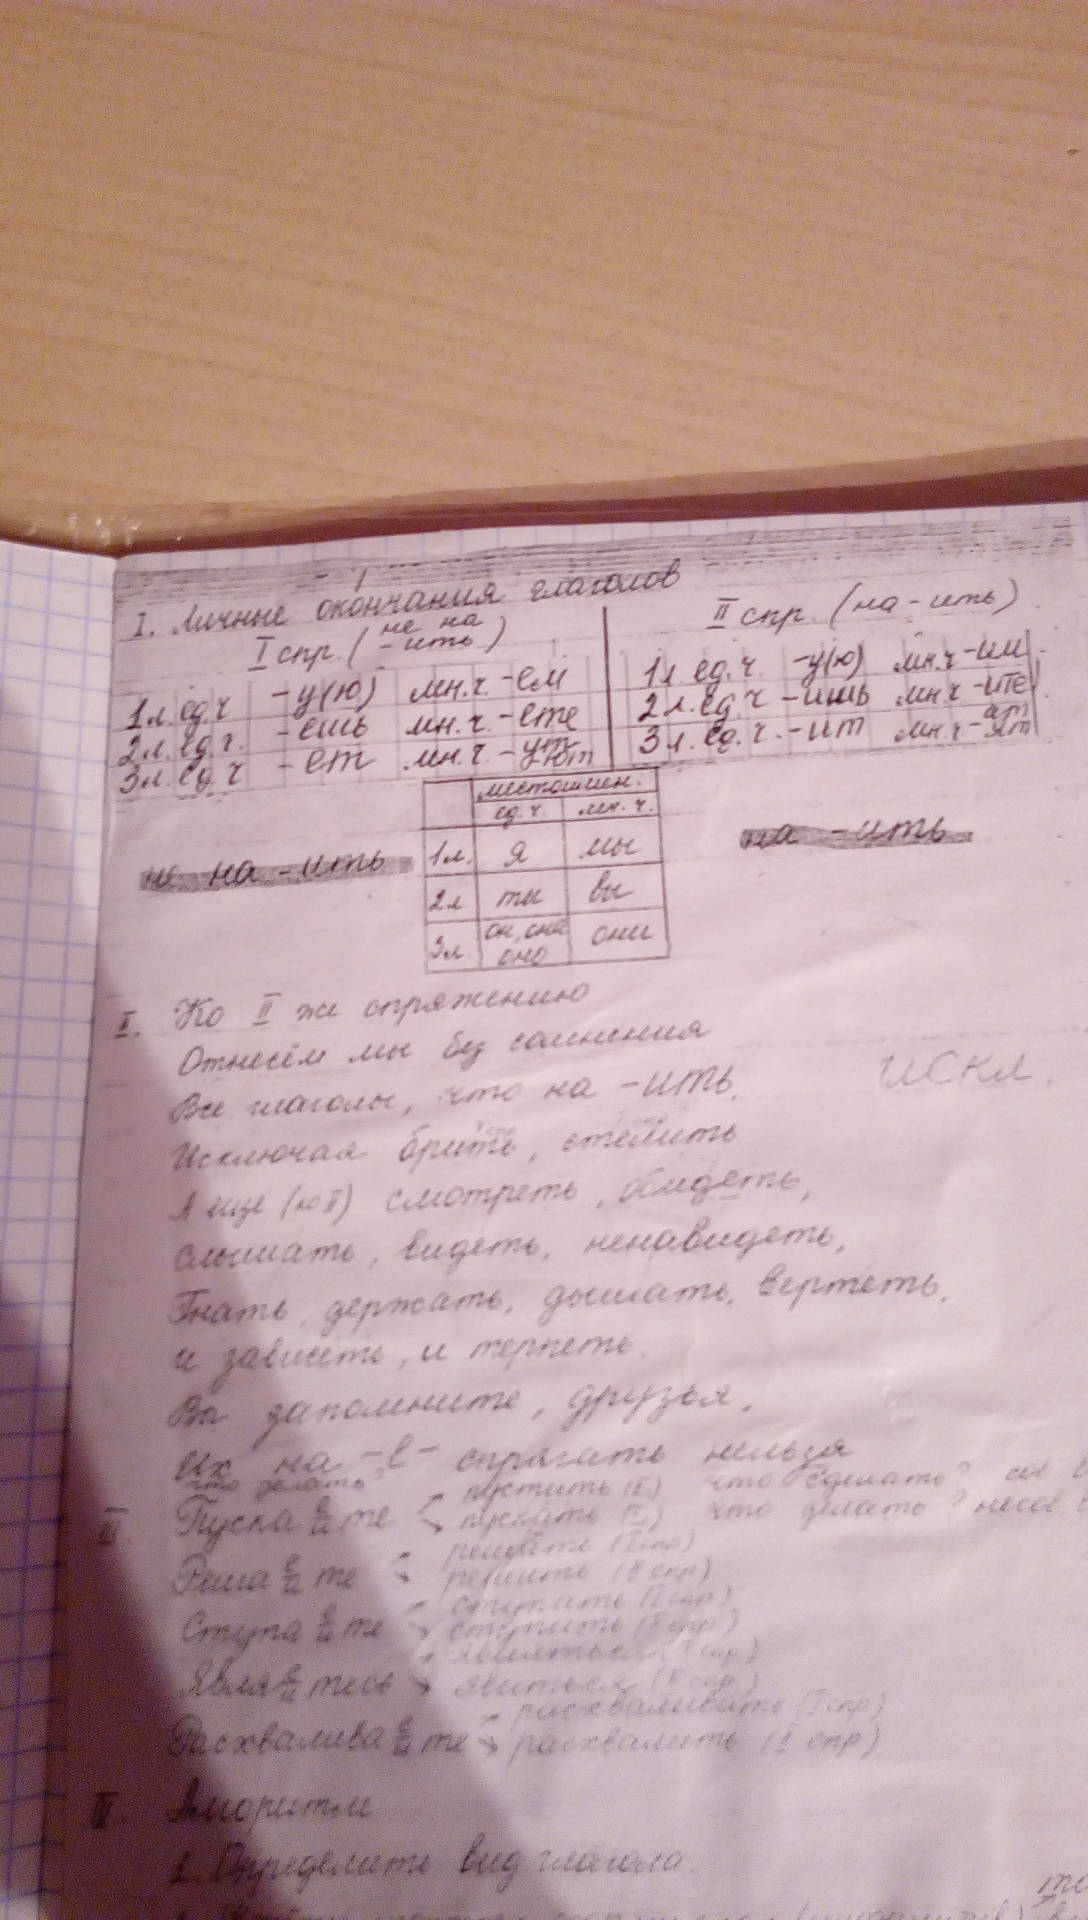 I. Личные окончания глаголов
I спр. (не на -ить)
II спр. (на -ить)
1л. ед.ч -у(ю) мн.ч. -ем
2л. ед.ч. -ешь мн.ч. -ете
3л. ед.ч -ет мн.ч -ут ют
1л. ед.ч. -у(ю) мн.ч -им
2л. ед.ч -ишь мн.ч -ите
3л. ед.ч. -ит мн.ч -ат ят
местоимен.
ед.ч. мн.ч.
1л. я мы
2л ты вы
3л. он, она оно они
не на -ить
на -ить
II. Ко II же спряжению
Отнесём мы без сомнения
Все глаголы, что на -ить,
искл.
Исключая брить, стелить
А еще (ко II) смотреть, обидеть,
слышать, видеть, ненавидеть,
Гнать, держать, дышать, вертеть,
и зависеть, и терпеть.
Вы запомните, друзья,
Их на -е- спрягать нельзя
что делать
пустить (II) что сделать?
III. Пуска е/и те пускать что делать? несов.
решать (I спр)
Реша е/и те решить (II спр)
ступать (I спр)
Ступа е/и те ступить (II спр)
являться (I спр)
Явля е/и тесь явиться (II спр)
расхваливать (I спр)
Расхвалива е/и те расхвалить (II спр)
IV. Алгоритм
1. Определить вид глагола.